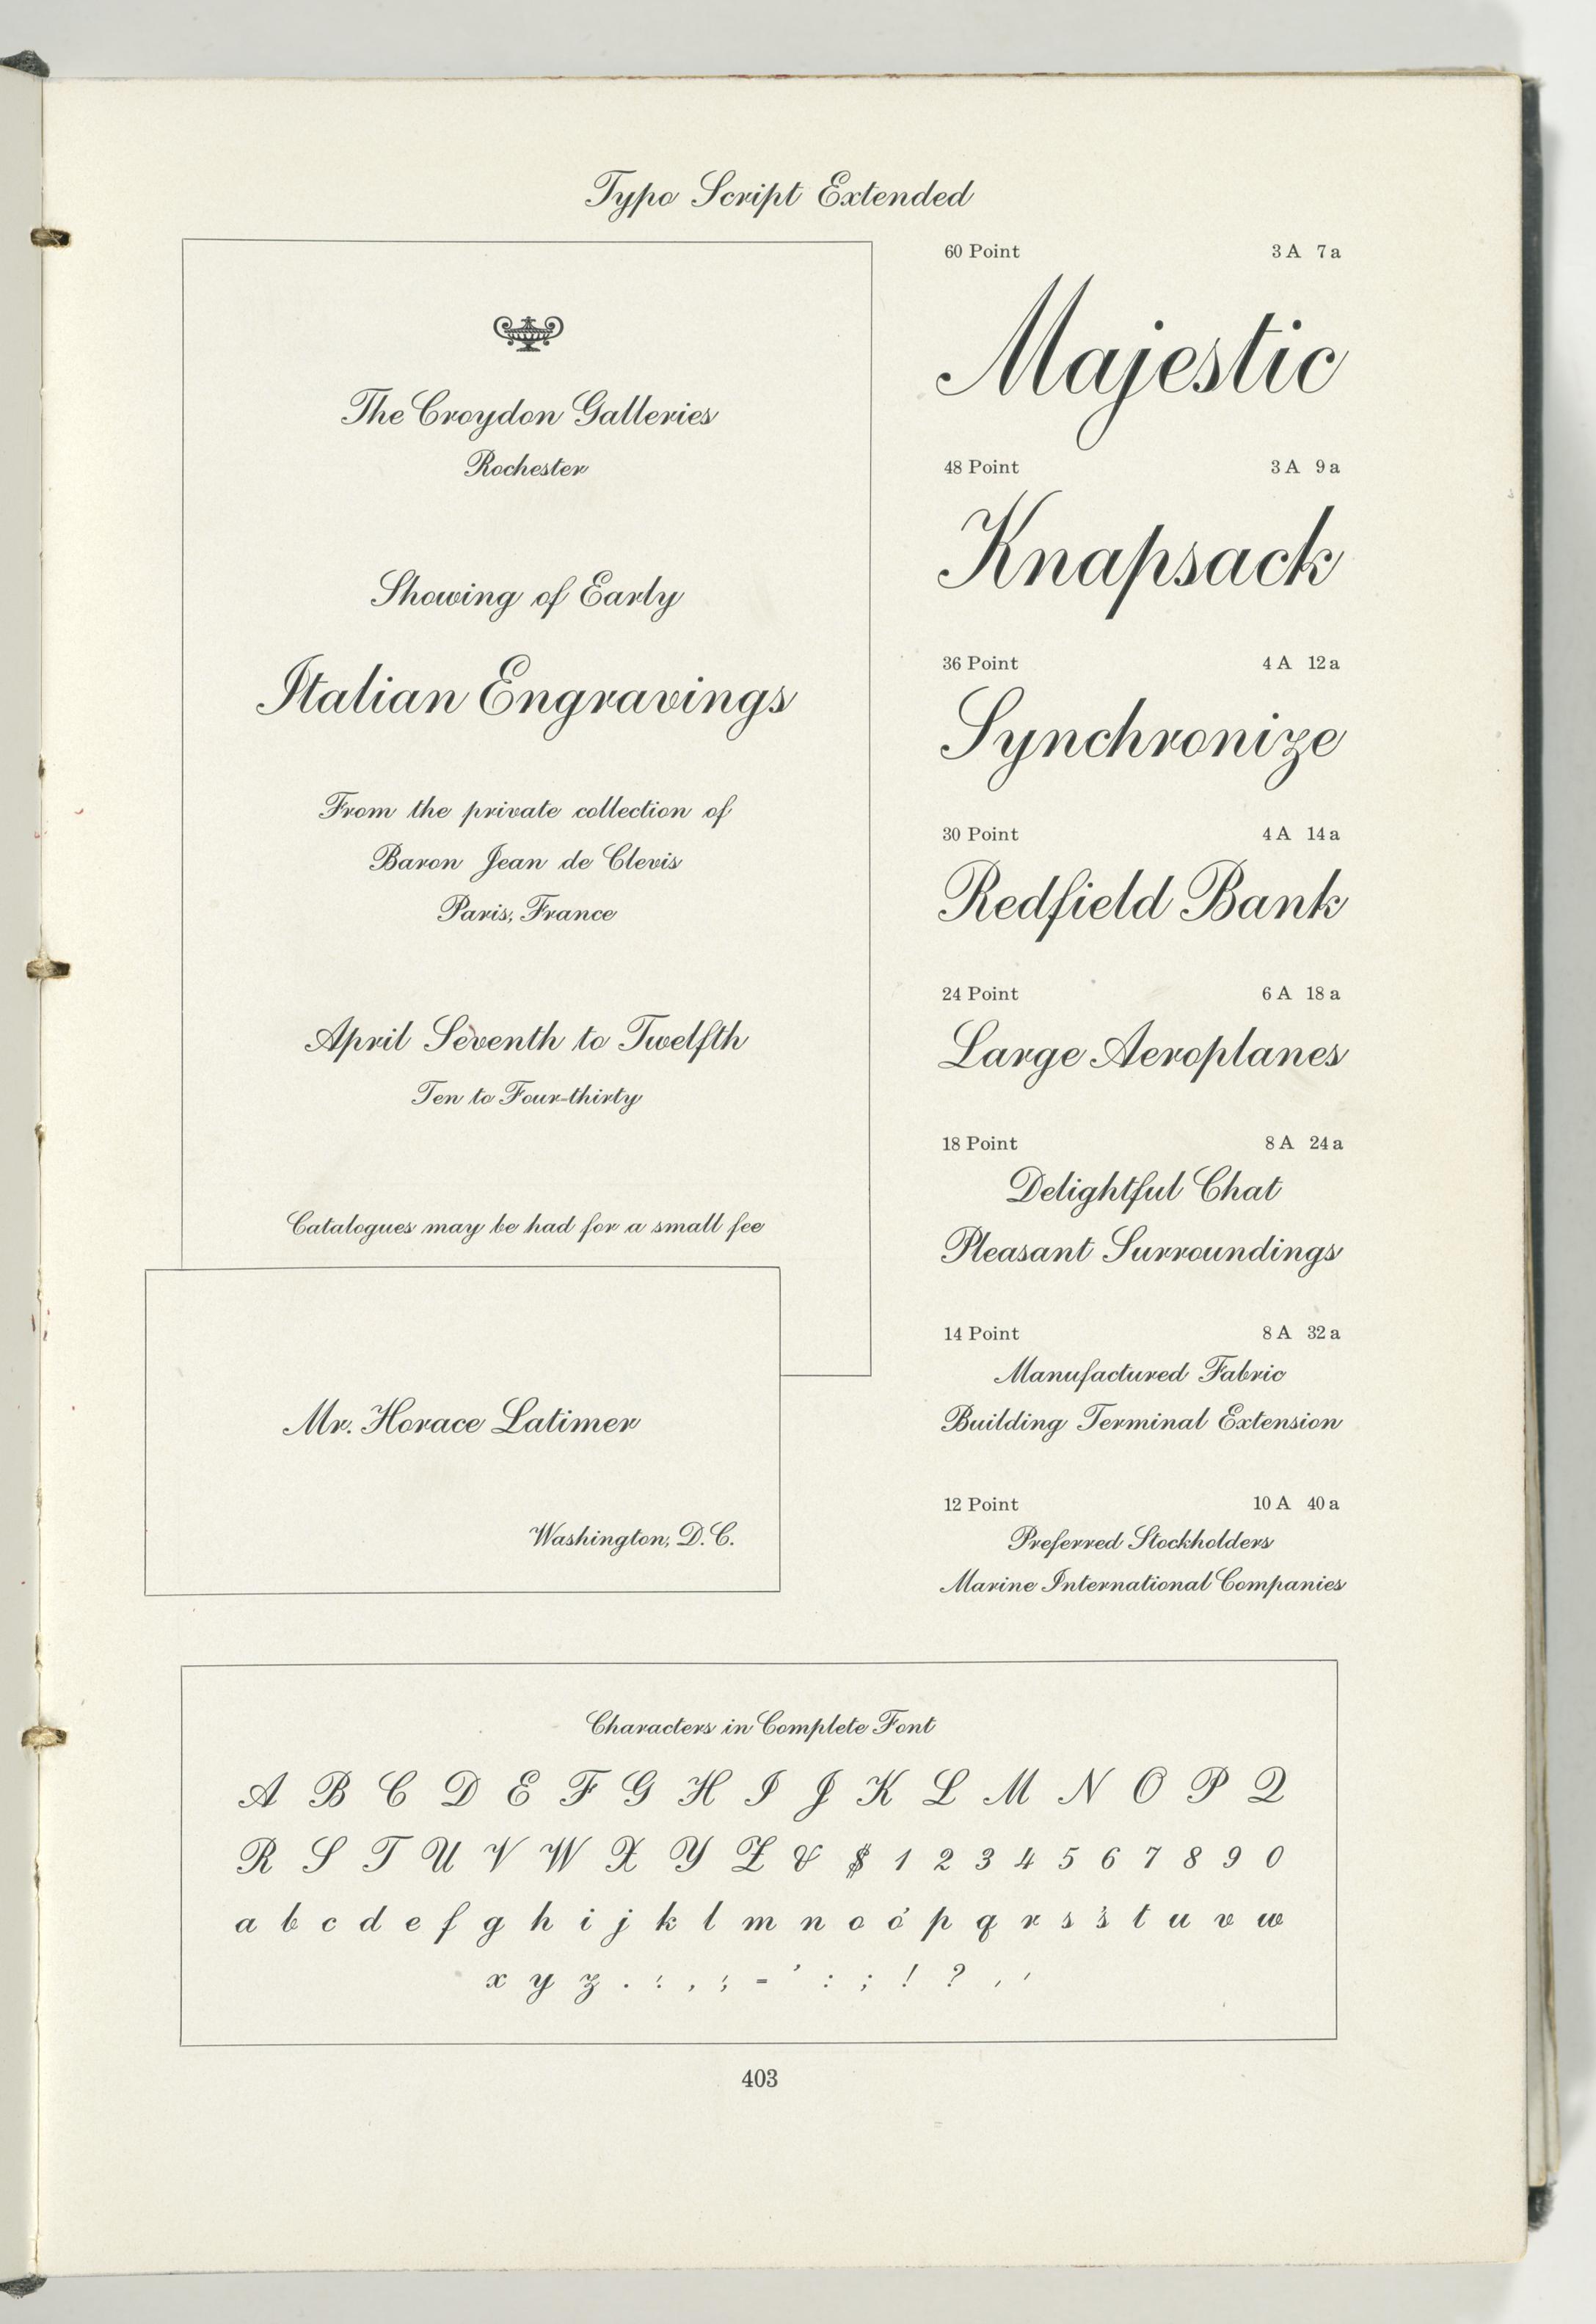 Typo Script Extended
The Croydon Galleries
Rochester
Showing of Early
Italian Engravings
From the private collection of
Baron Jean de Clevis
Paris, France
April Seventh to Twelfth
Ten to Four-thirty
Catalogues may be had for a small fee
Mr. Horace Latimer
Washington, D.C.
60 Point 3 A 7 a
Majestic
48 Point 3 A 9 a
Knapsack
36 Point 4 A 12 a
Synchronize
30 Point 4 A 14 a
Redfield Bank
24 Point 6 A 18 a
Large Aeroplanes
18 Point 8 A 24 a
Delightful Chat
Pleasant Surroundings
14 Point 8 A 32 a
Manufactured Fabric
Building Terminal Extension
12 Point 10 A 40 a
Preferred Stockholders
Marine International Companies
Characters in Complete Font
A B C D E F G H I J K L M N O P Q
R S T U V W X Y Z & $ 1 2 3 4 5 6 7 8 9 0
a b c d e f g h i j k l m n o ó p q r s ś t u v w
x y z . : , ; - ' : ; ! ? , '
403